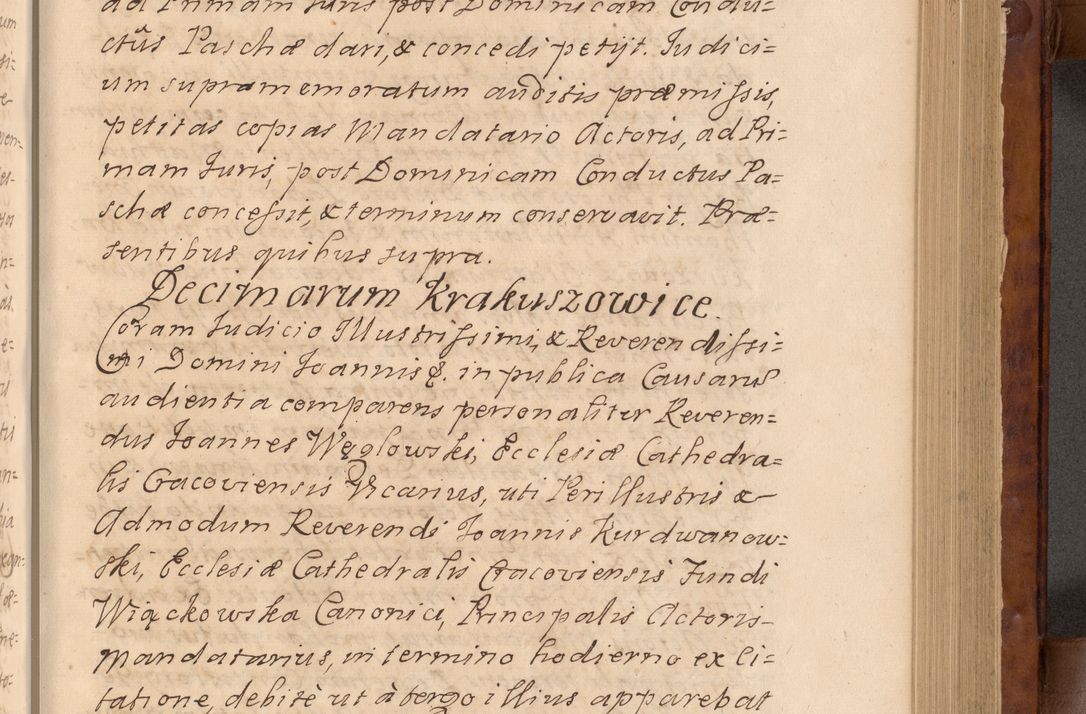 ad Primam Juris post Dominicam Condu=
ctûs Paschæ dari, & concedi petijt. Judici=
um supramemoratum auditis præmissis,
petitas copias Mandatario Actoris, ad Pri=
mam Juris, post Dominicam Conductus Pa=
schæ concessit, & terminum conservavit. Præ=
sentibus quibus supra.
Decimarum Krakuszowice.
Coram Judicio Illustrissimi, & Reverendissi=
mi Domini Joannis &. in publica Causarum
audientia comparens personaliter Reveren=
dus Joannes Węglowski, Ecclesiæ Cathedra=
lis Cracoviensis Vicarius, uti Perillustris &
Admodum Reverendi Joannis Kurdwanow=
ski, Ecclesiæ Cathedralis Cracoviensis Fundi
Wiąckowska Canonici, Principalis Actoris
Mandatarius, in termino hodierno ex ci=
tatione, debitè ut à tergo illius apparebat